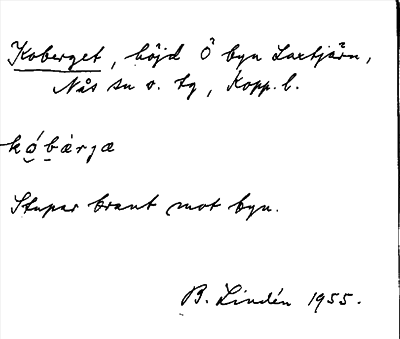 Koberget, höjd Ö byn Laxtjärn,
Nås sn o. tg, Kopp. l.
kǫ́bærjæ
Stupar brant mot byn.
B. Lindén 1955.